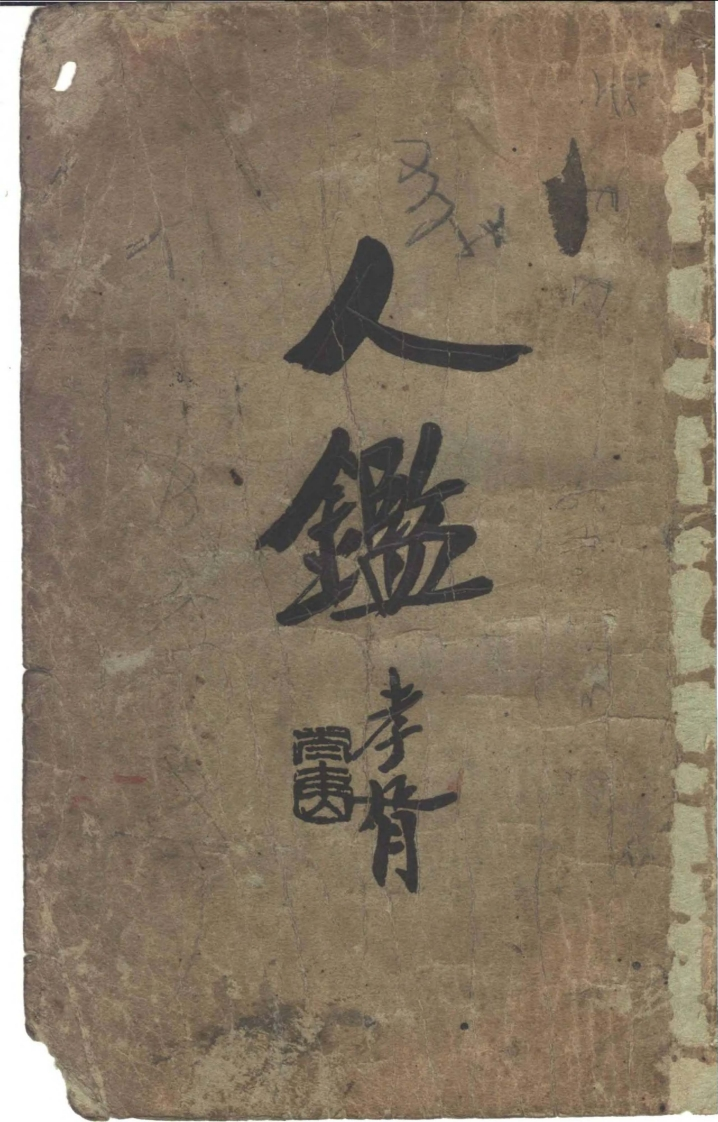 人鑑
孝胥